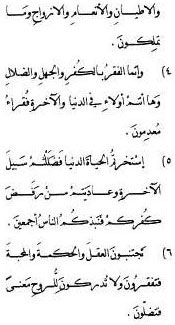 والاطيان والأنعام والازواج وما
تملكون .
٤) وانما الفقر بالكفر والجهل والضلال
وها أنتم أولاء في الدنيا والآخرة فقراء
معدمون .
٥) إستخرتم الحياة الدنيا فضللتم سبيل
الآخرة وعاديتم من رفض
كفركم فنبذكم الناس أجمعين .
٦) تجتنبون العقل والحكمة والمحبة
فتفقرون ولا تدركون للروح معنى
فتضلون .